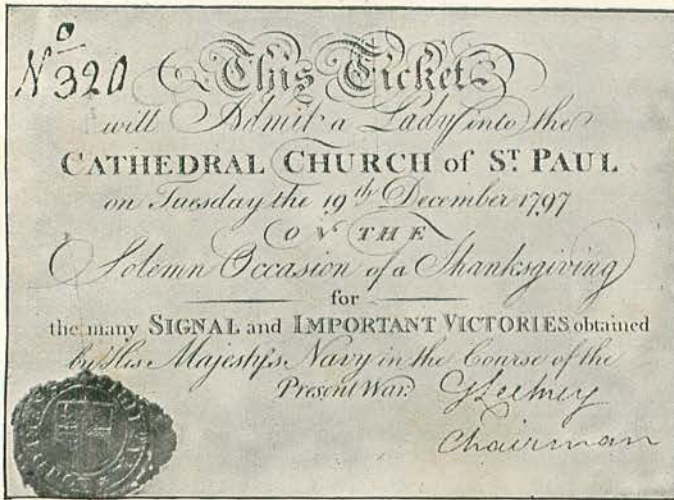 No 320
This Ticket
will Admit a Lady into the
CATHEDRAL CHURCH of ST. PAUL
on Tuesday the 19th December 1797
ON THE
Solemn Occasion of a Thanksgiving
for
the many SIGNAL and IMPORTANT VICTORIES obtained
by His Majesty's Navy in the Course of the
Present War.
Chairman